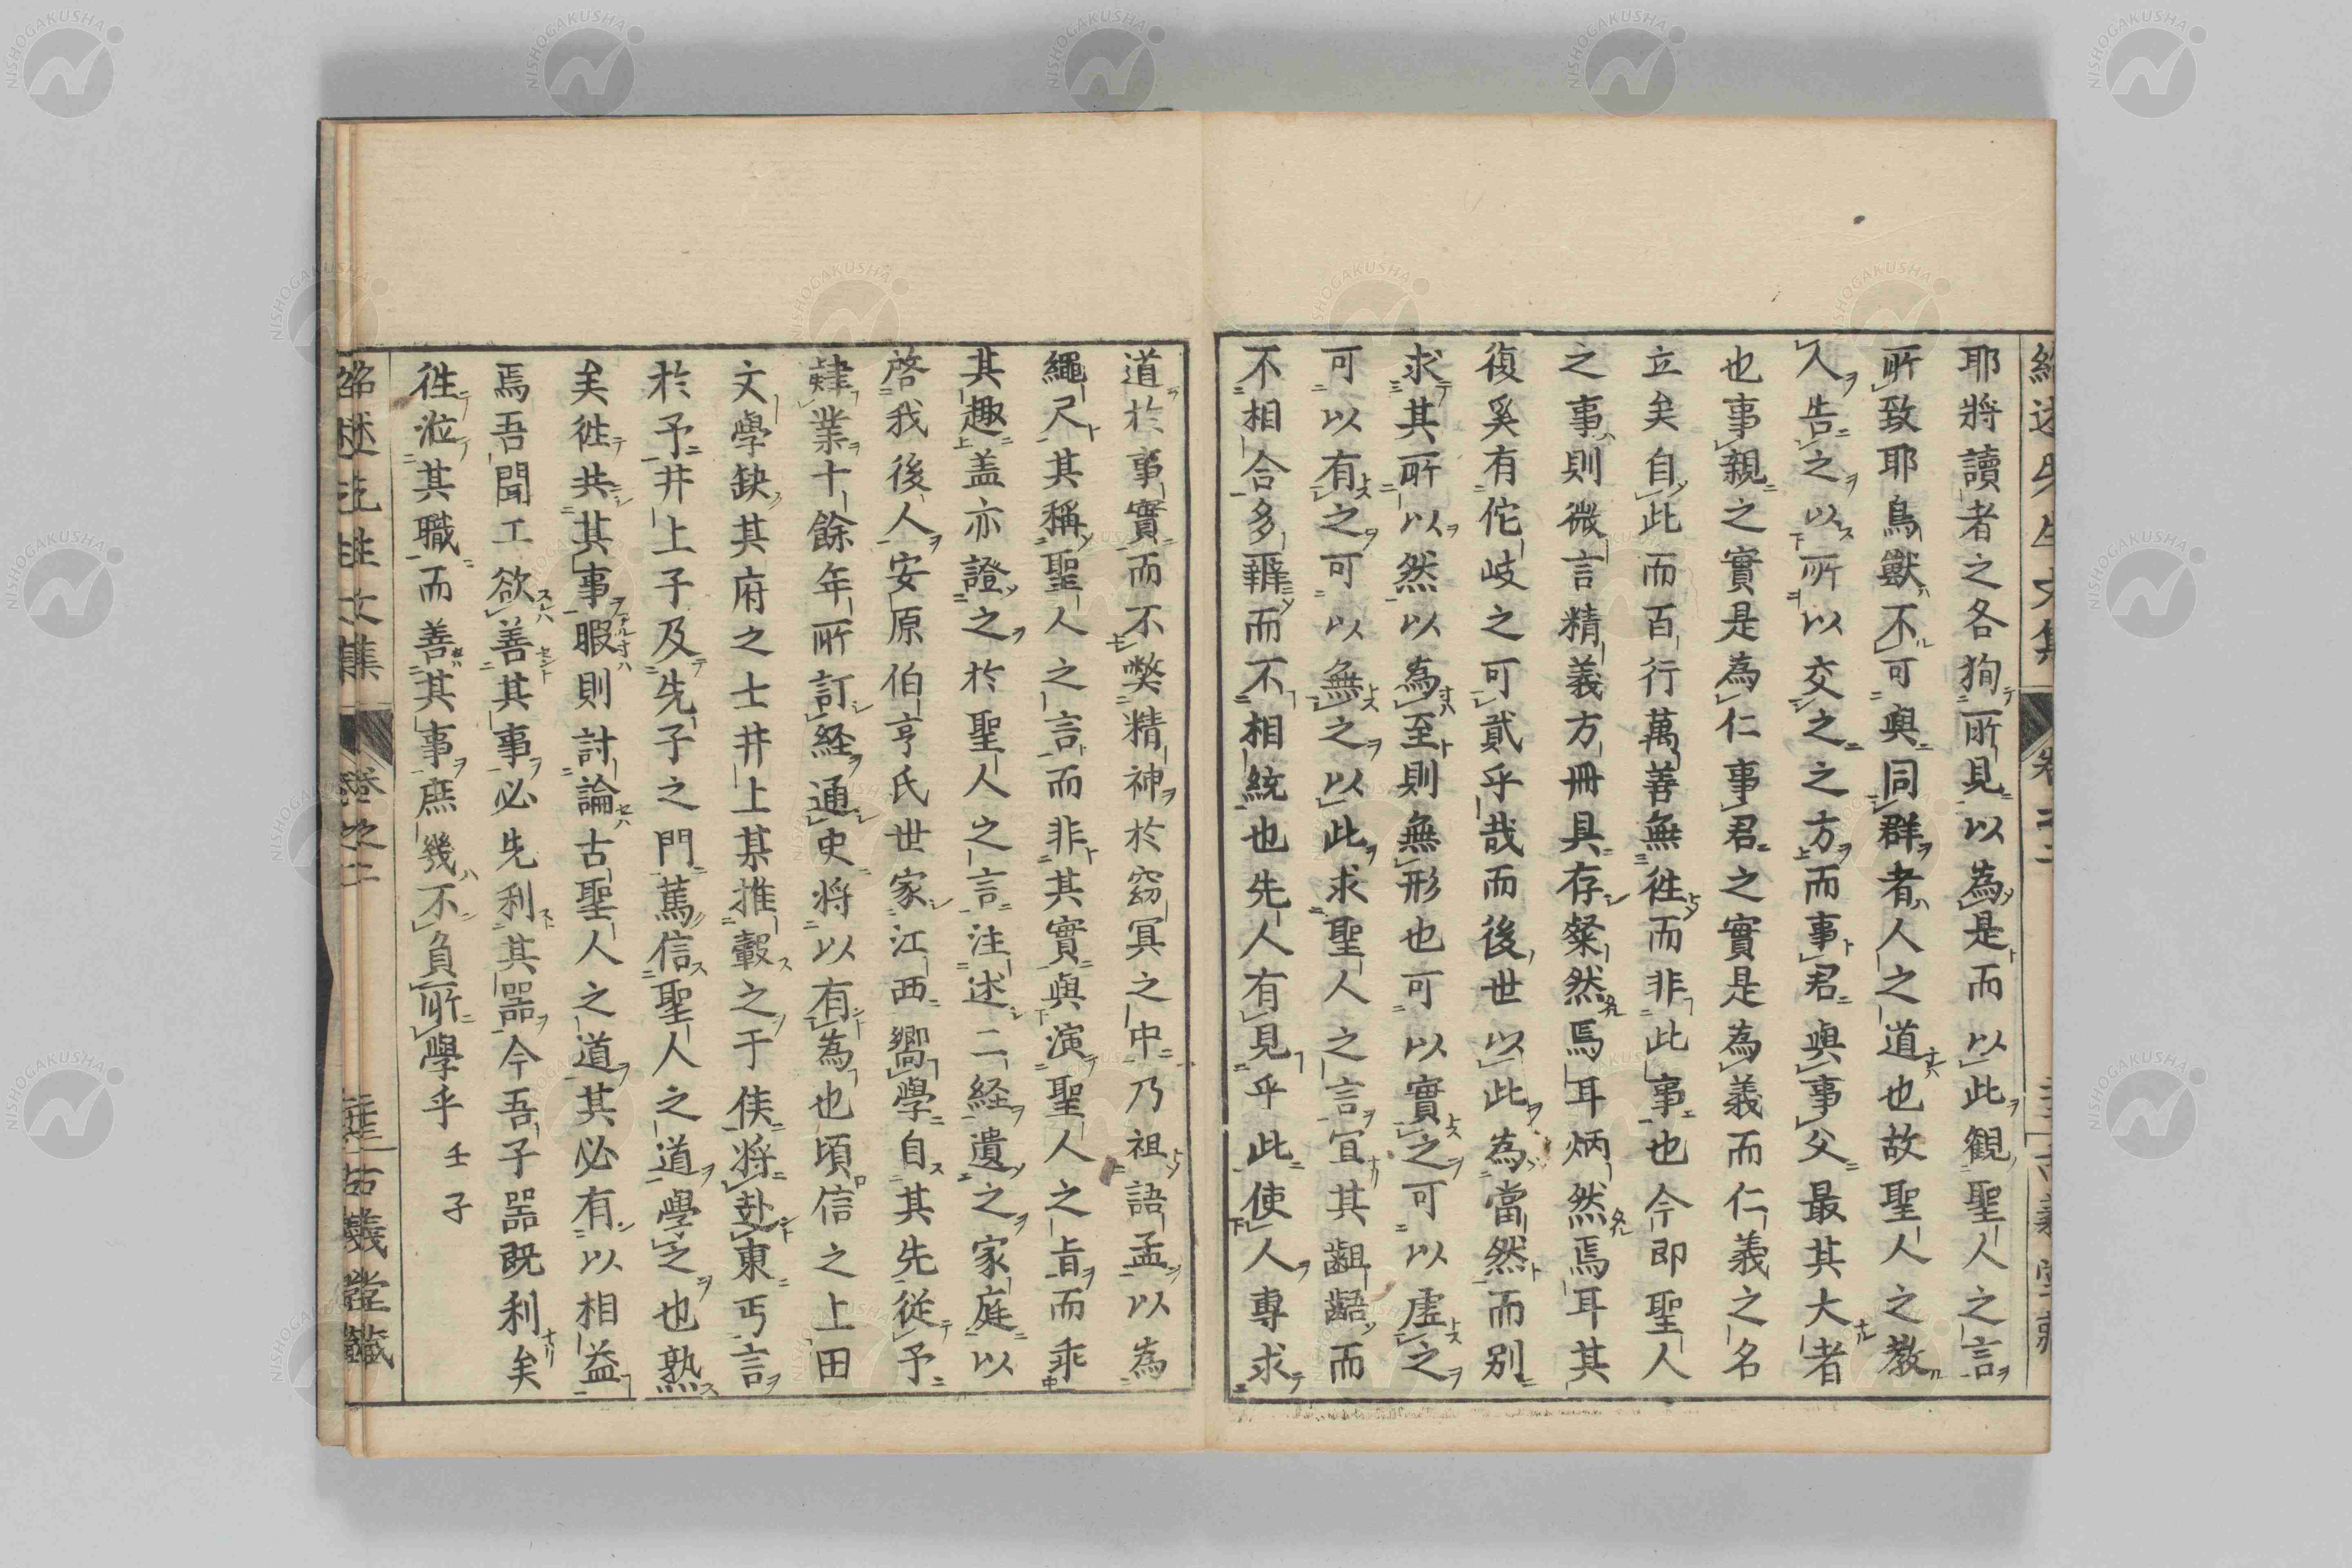 耶將讀者之各狥所見以為是而以此観聖人之言
所致耶鳥獸不可與同群者人之道也故聖人之教
人告之以所以交之之方而事君與事父最其大者
也事親之實是為仁事君之實是為義而仁義之名
立矣自此而百行萬善無徃而非此事也今即聖人
之事則微言精義方冊具存粲然焉耳炳然焉耳其
復奚有佗岐之可貳乎哉而後世以此為當然而別
求其所以然以為至則無形也可以實之可以虛之
可以有之可以無之以此求聖人之言宜其齟齬而
不相合多歸而不相統也先人有見乎此使人專求
道於事實而不弊精神於窈冥之中乃祖語孟以為
繩尺其稱聖人之言而非其實與演聖人之旨而乖
其趣盖亦證之於聖人之言注述二経遺之家庭以
啓我後人安原伯亨氏世家江西嚮學自其先從予
肄業十餘年所訂経通史将以有為也頃信之上田
文學缺其府之士井上某推轂之于侯将赴東丐言
於予井上子及先子之門篤信聖人之道學之也熟
矣徃共其事暇則討論古聖人之道其必有以相益
焉吾聞工欲善其事必先利其器今吾子器既利矣
徃涖其職而善其事庶幾不負所學乎 壬子
紹述先生文集 卷之二 古義堂藏